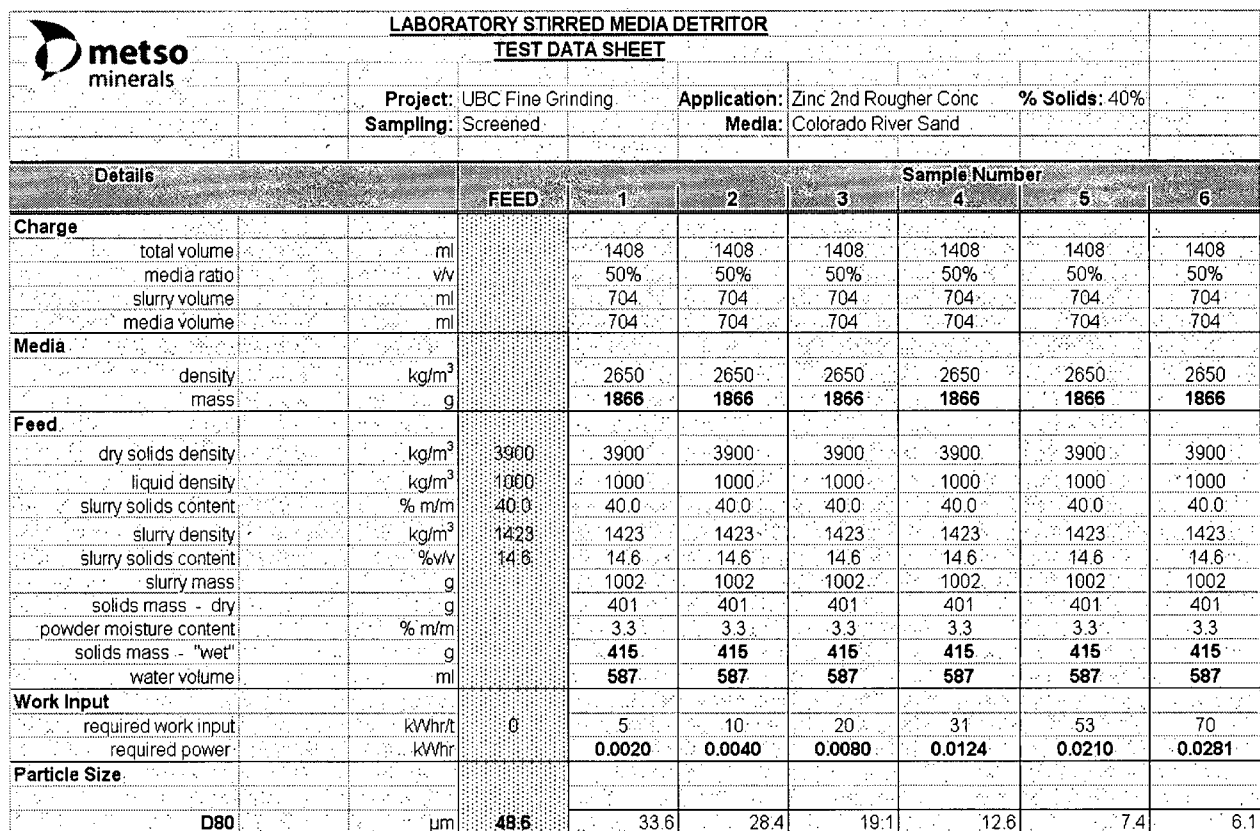 LABORATORY STIRRED MEDIA DETRITOR
TEST DATA SHEET
metso
minerals
Project: UBC Fine Grinding Application: Zinc 2nd Rougher Conc % Solids: 40%
Sampling: Screened Media: Colorado River Sand
Details Sample Number
FEED 1 2 3 4 5 6
Charge
total volume ml 1408 1408 1408 1408 1408 1408
media ratio v/v 50% 50% 50% 50% 50% 50%
slurry volume ml 704 704 704 704 704 704
media volume ml 704 704 704 704 704 704
Media
density kg/m³ 2650 2650 2650 2650 2650 2650
mass g 1866 1866 1866 1866 1866 1866
Feed
dry solids density kg/m³ 3900 3900 3900 3900 3900 3900 3900
liquid density kg/m³ 1000 1000 1000 1000 1000 1000 1000
slurry solids content % m/m 40.0 40.0 40.0 40.0 40.0 40.0 40.0
slurry density kg/m³ 1423 1423 1423 1423 1423 1423 1423
slurry solids content %v/v 14.6 14.6 14.6 14.6 14.6 14.6 14.6
slurry mass g 1002 1002 1002 1002 1002 1002
solids mass - dry g 401 401 401 401 401 401
powder moisture content % m/m 3.3 3.3 3.3 3.3 3.3 3.3
solids mass - "wet" g 415 415 415 415 415 415
water volume ml 587 587 587 587 587 587
Work Input
required work input kWhr/t 0 5 10 20 31 53 70
required power kWhr 0.0020 0.0040 0.0080 0.0124 0.0210 0.0281
Particle Size
D80 µm 48.6 33.6 28.4 19.1 12.6 7.4 6.1